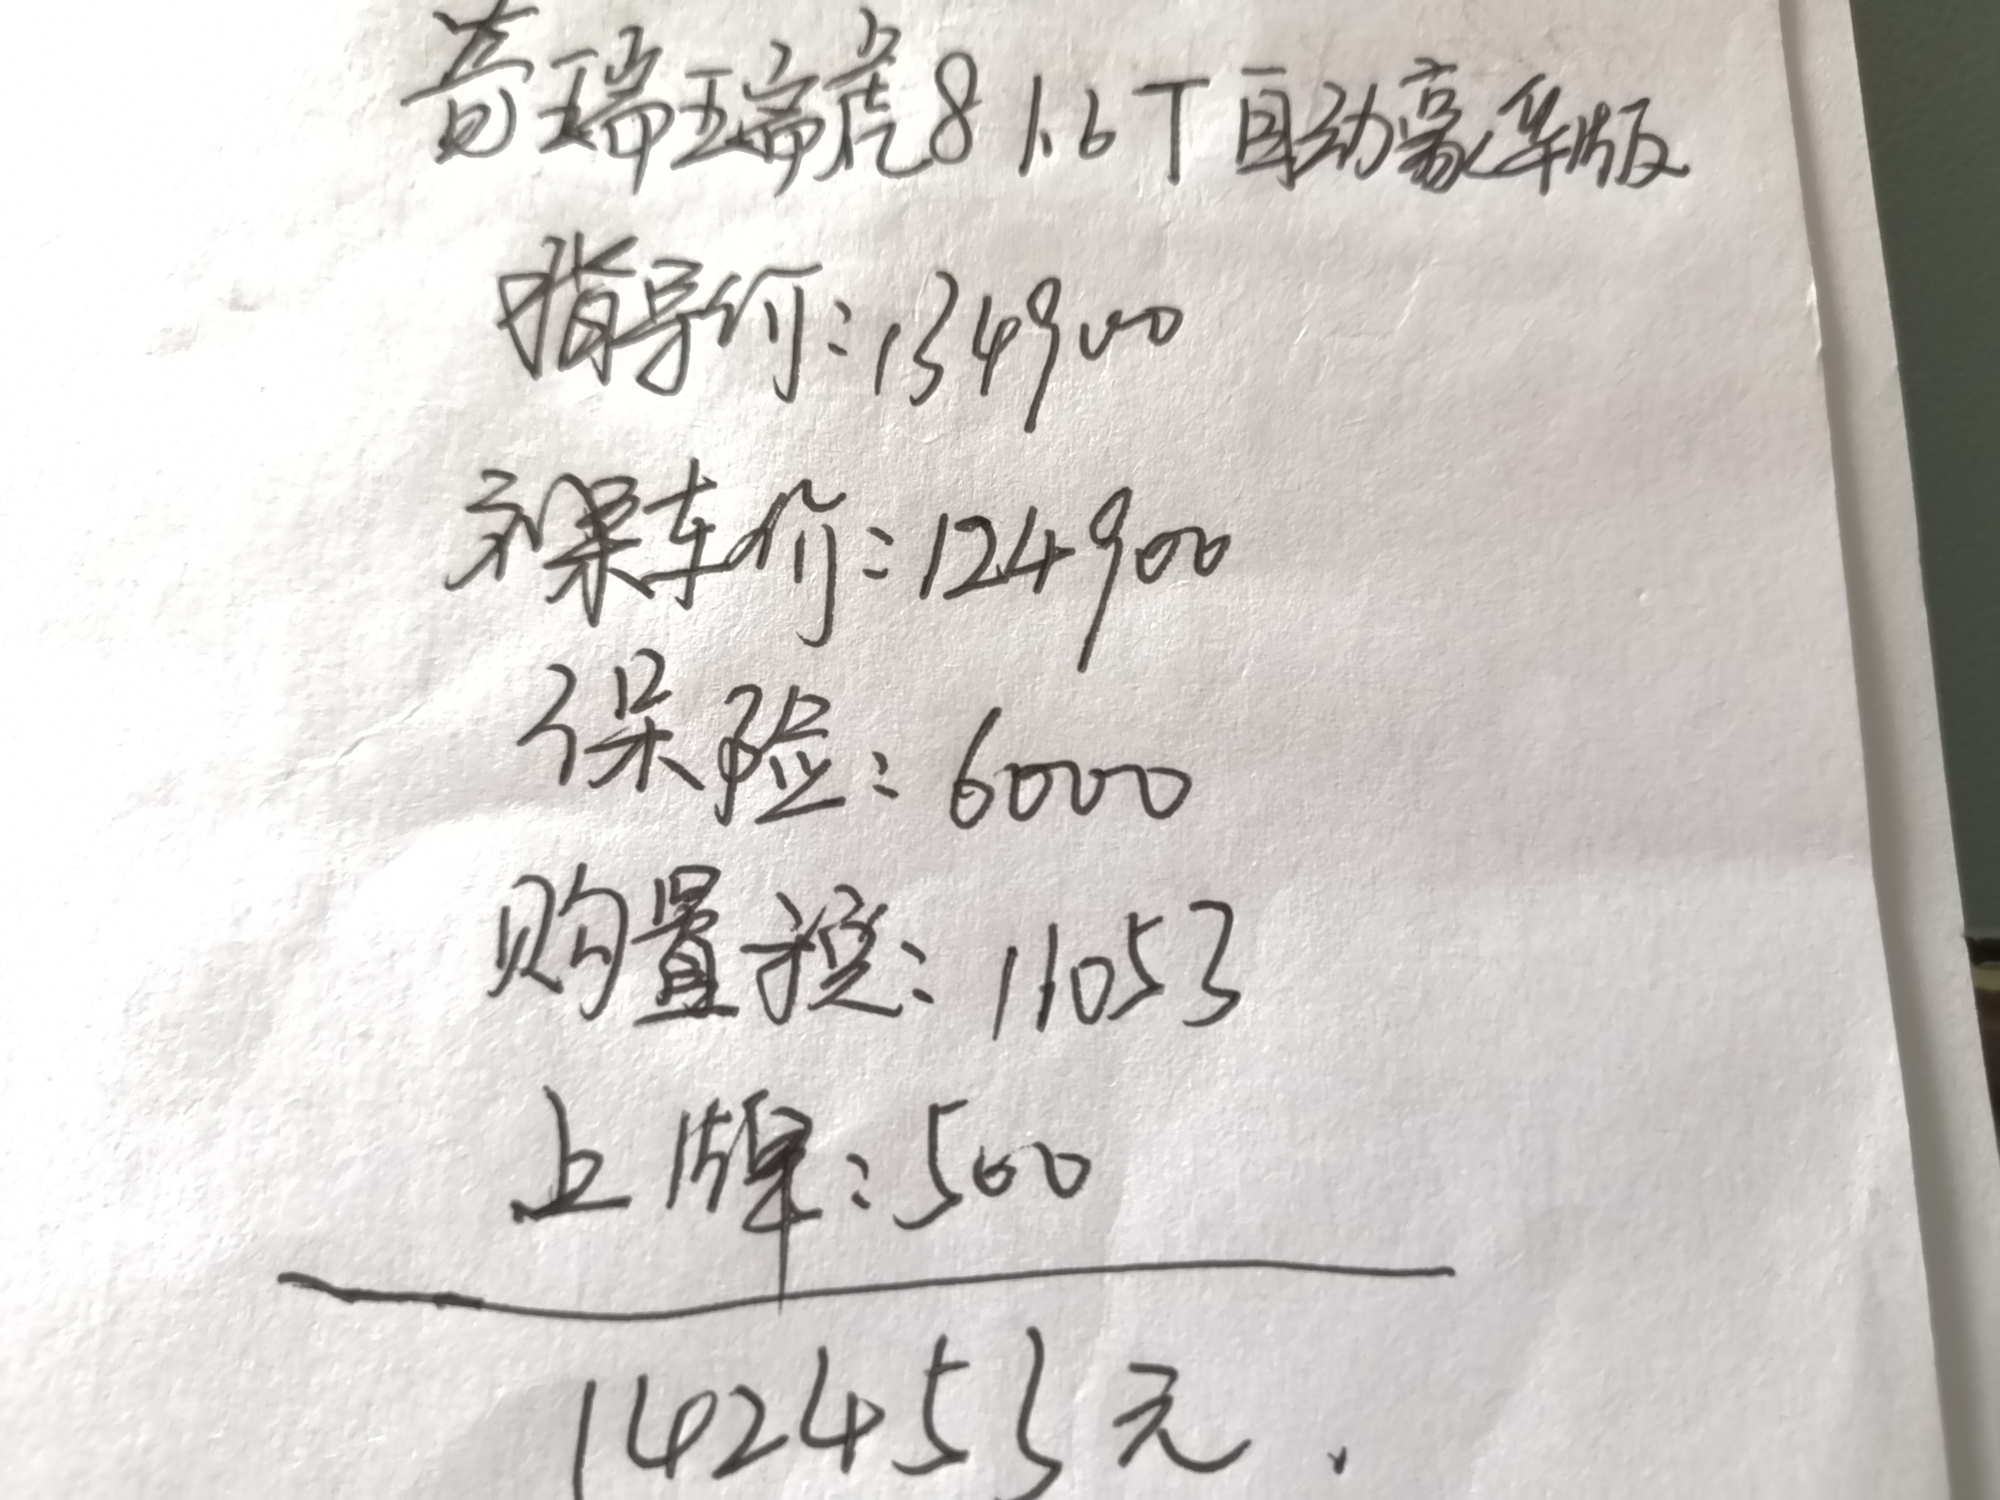 奇瑞瑞虎8 1.6T自动豪华版
指导价:134900
裸车价:124900
保险:6000
购置税:11053
上牌:500
142453元.